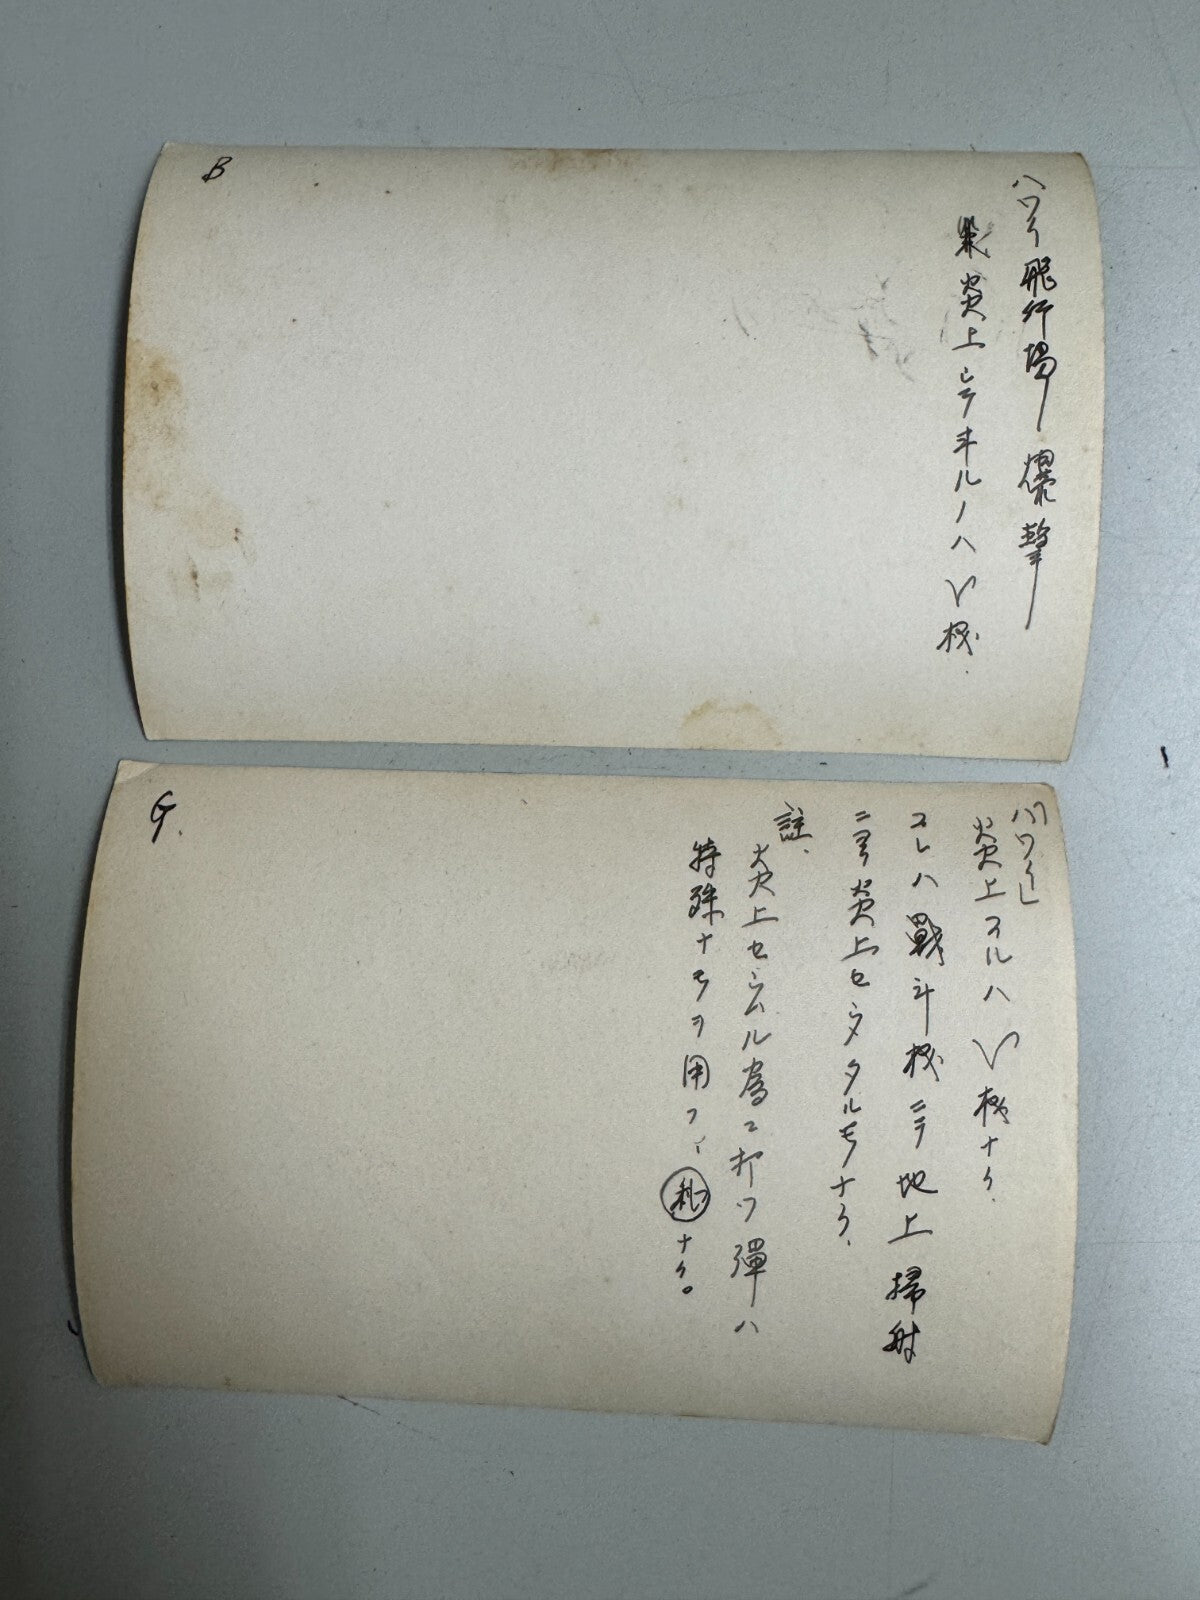 B
ハワイ飛行場爆撃
炎上シテヰルノハ V 機.
G.
ハワイ
炎上スルハ V 機ナリ.
コレハ戰斗機ニテ地上掃射
ニヨリ炎上セシメタルモノナリ.
註.
炎上セシムル為ニ打ツ彈ハ
特殊ナモノヲ用フ、㊙ナリ。